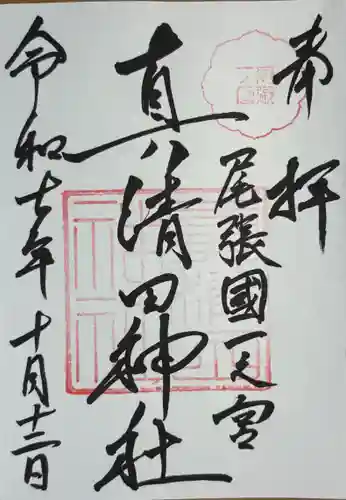 奉拝
尾張國一之宮
真清田神社
令和七年十月十二日